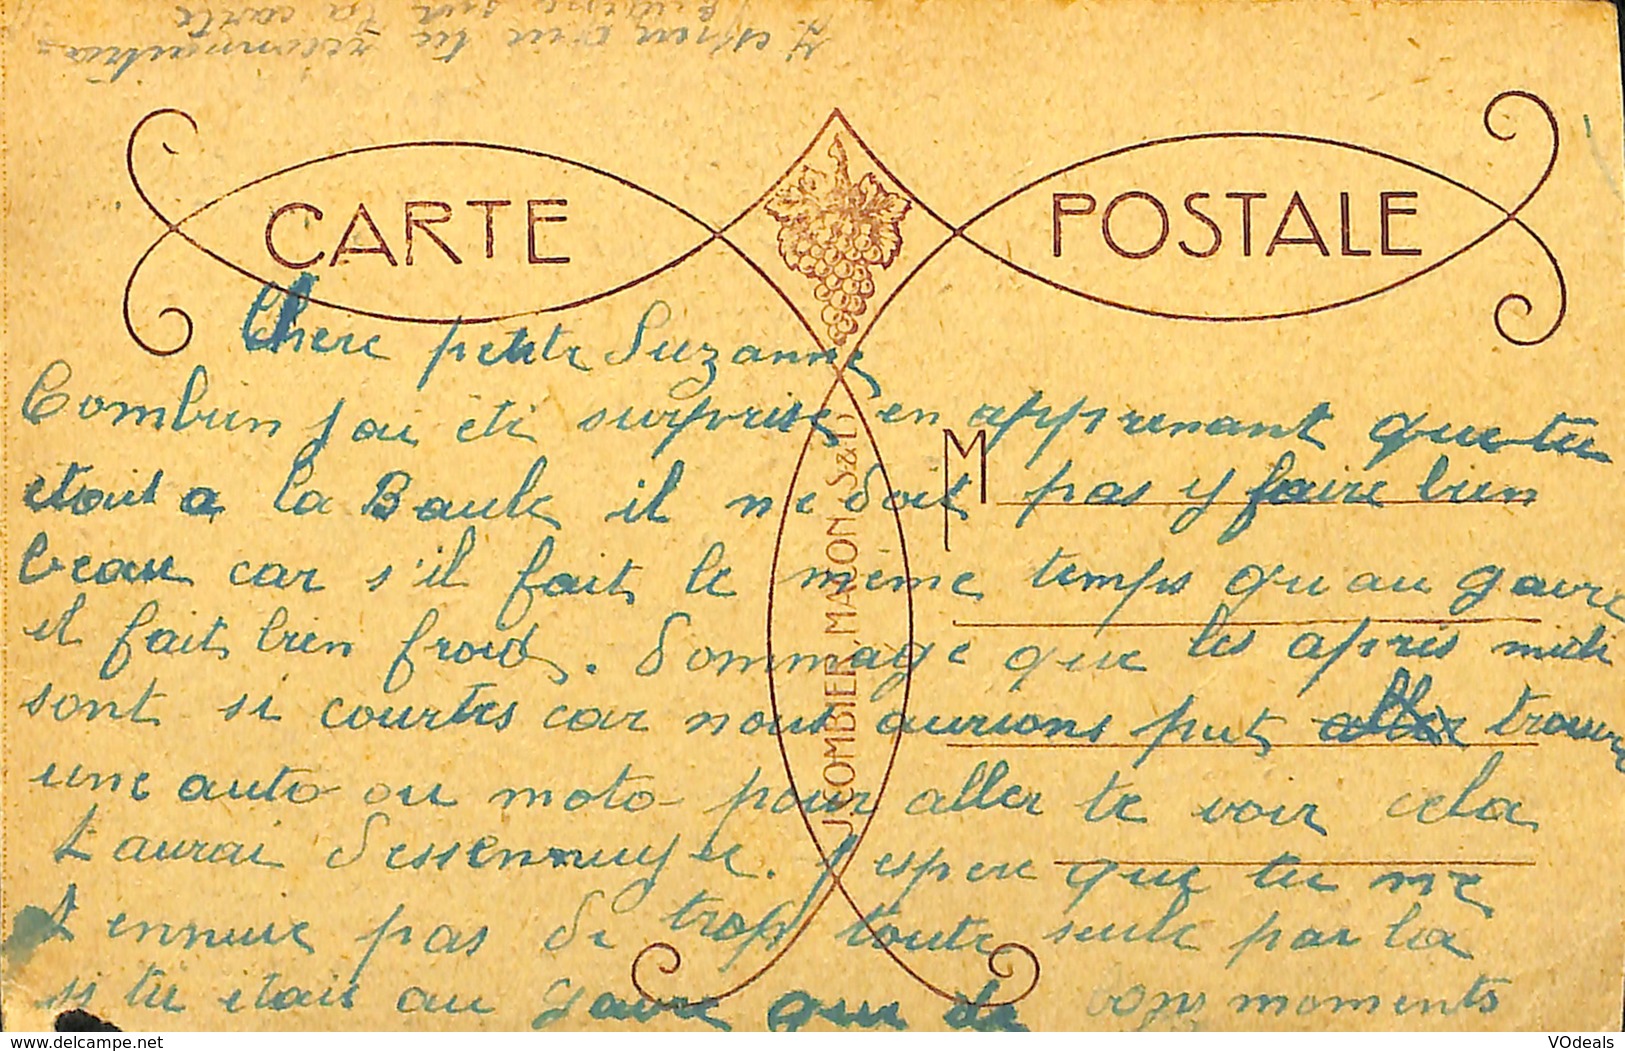 tu reconnaitras
sur la carte
CARTE POSTALE
Chere petite Suzanne
Combien j'ai été surprise en apprenant que tu
etait a la Baule il ne doit pas y faire bien
beau car s'il fait le même temps qu'au gavre
il fait bien froid. Dommage que les après midi
sont si courtes car nous aurions put aller trouver
une auto ou moto pour aller te voir cela
t aurai dessennuyée. J'espere que tu ne
t ennuie pas de trop toute seule par la
si tu etait au gavre que de bons moments
M
J. COMBIER, MACON, S&L
www.delcampe.net
VOdeals